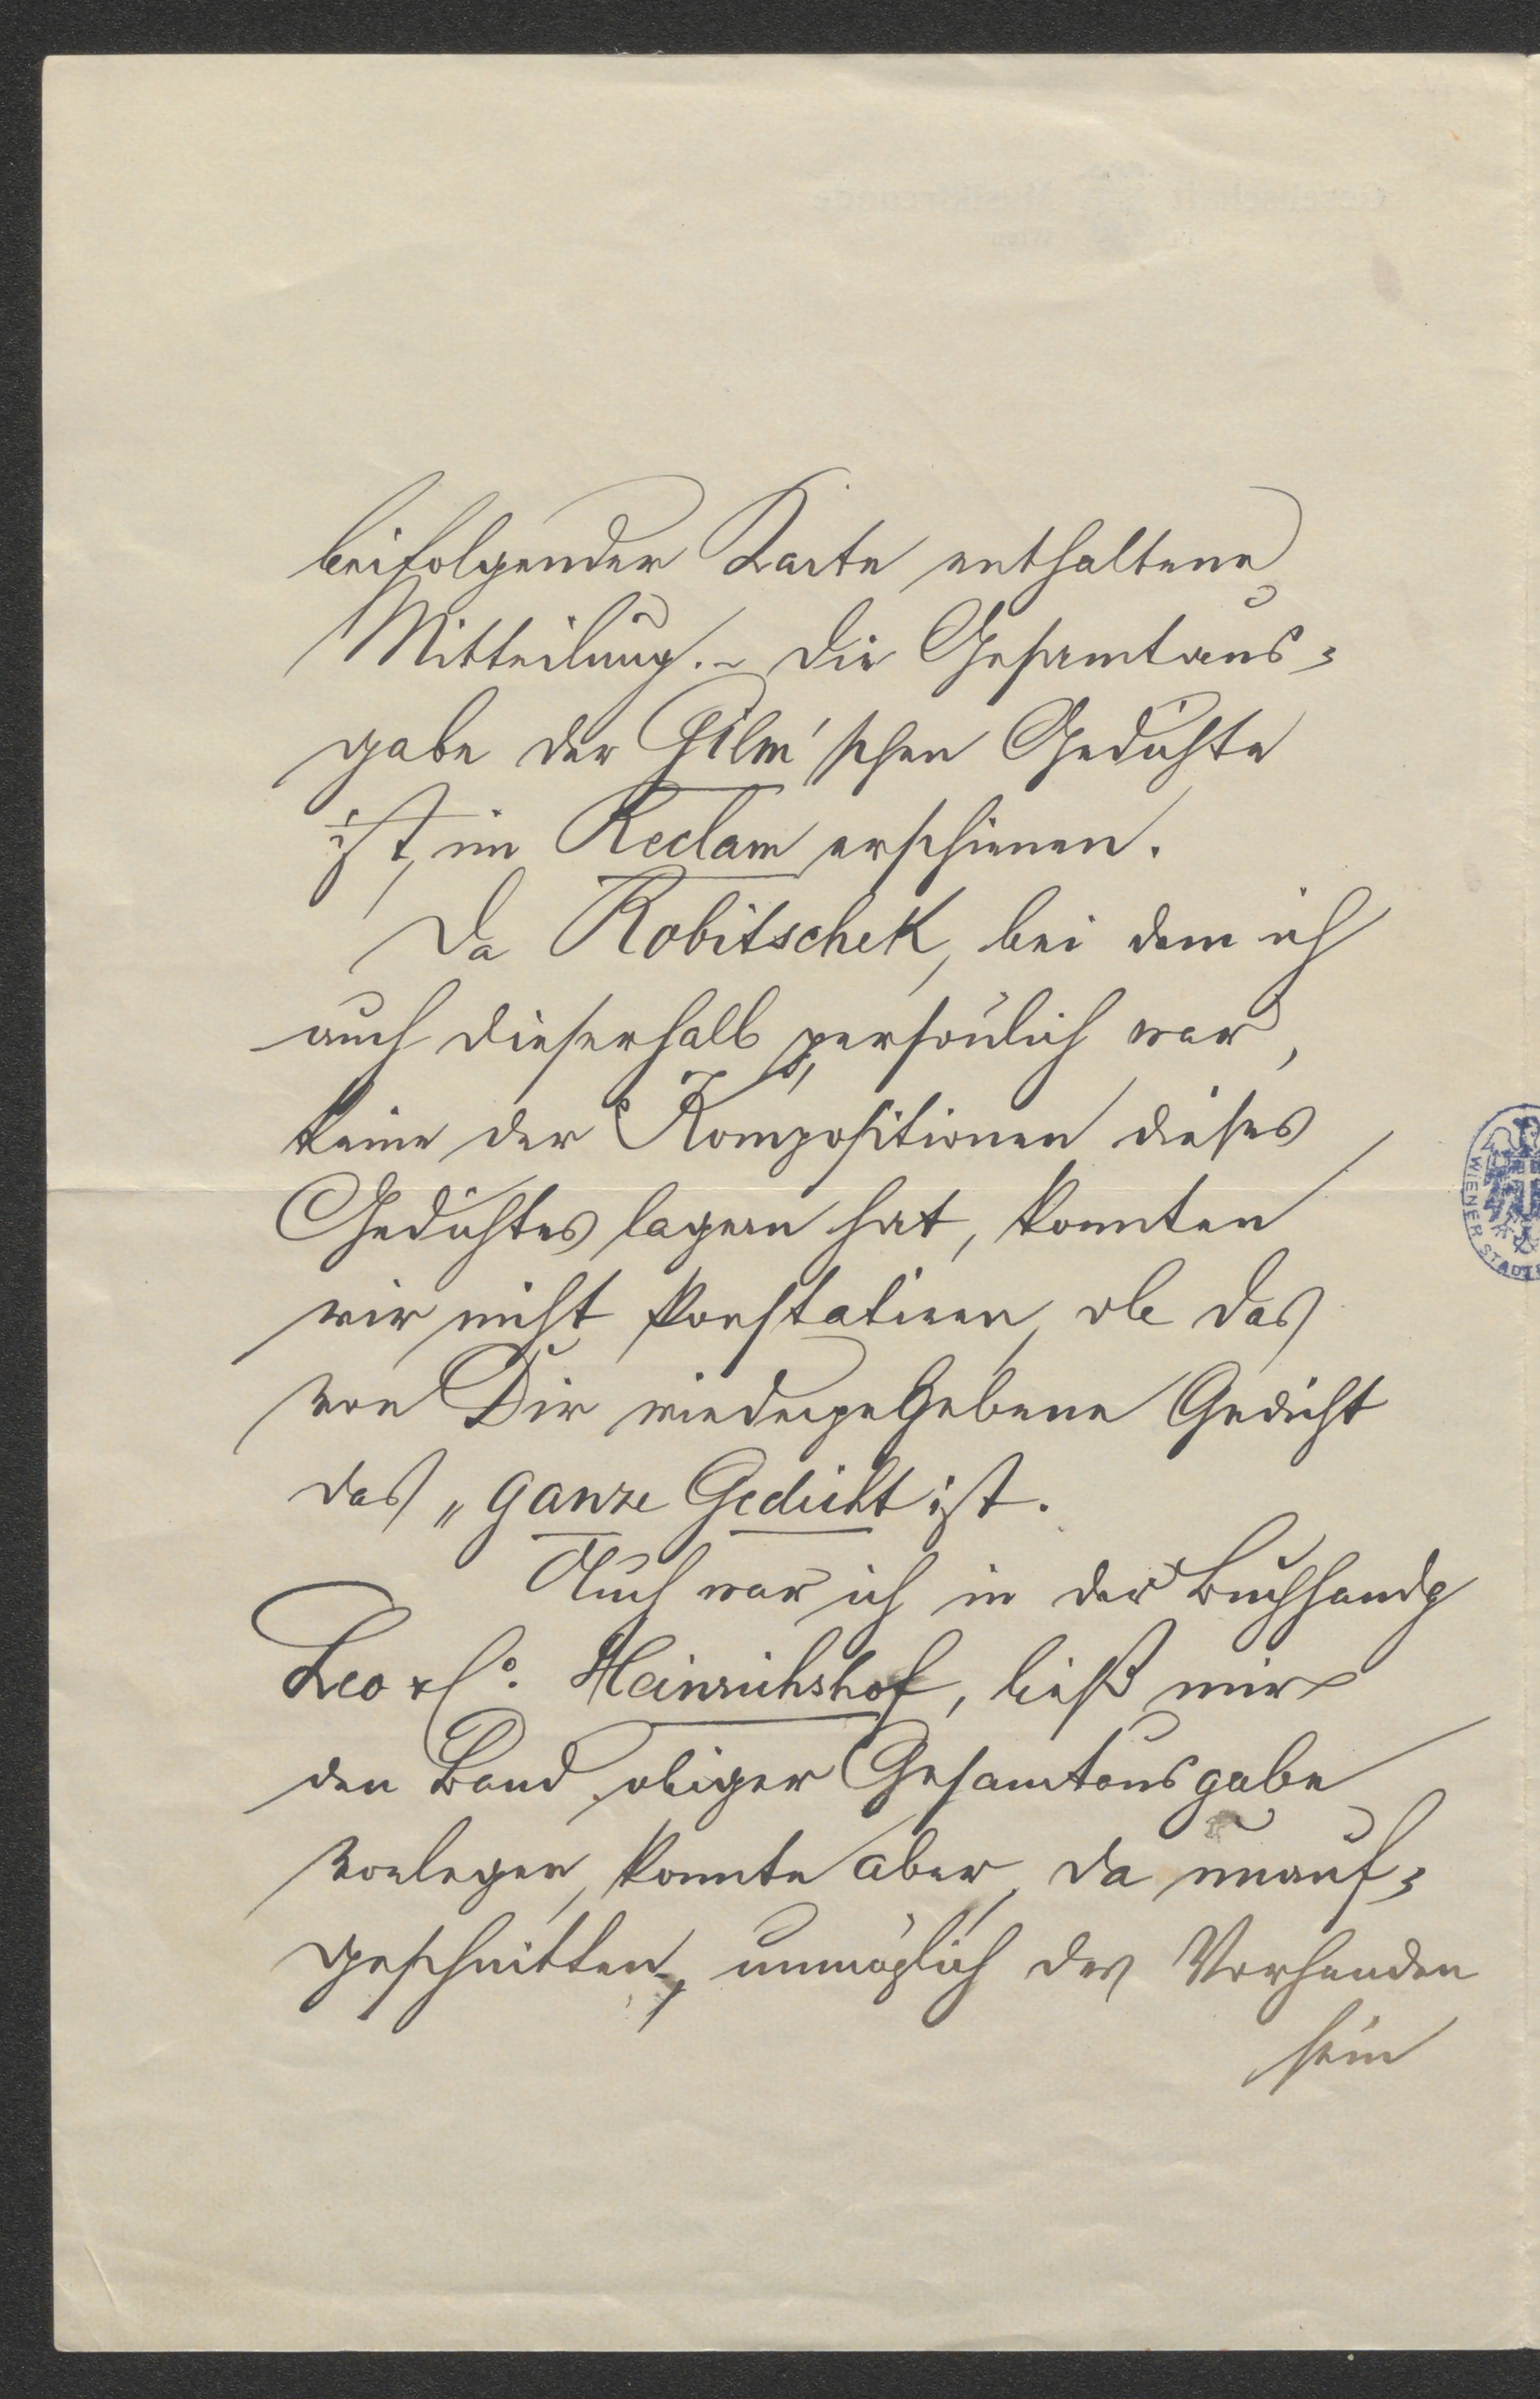 beifolgender Karte enthaltene
Mitteilung. – Die Gesamtaus-
gabe der Gilm'schen Gedichte
ist im Reclam erschienen.
Da Robitschek, bei dem ich
auch dieserhalb persönlich war,
keine der Kompositionen dieses
Gedichtes lagern hat, konnten
wir nicht konstatieren, ob das
von Dir wiedergegebene Gedicht
das „ganze Gedicht ist.
Auch war ich in der Buchhandg
Leo & Co. Heinrichshof, ließ mir
den Band obiger Gesamtausgabe
vorlegen, konnte aber, da unauf-
geschnitten, unmöglich das Vorhanden
sein
WIENER STADT